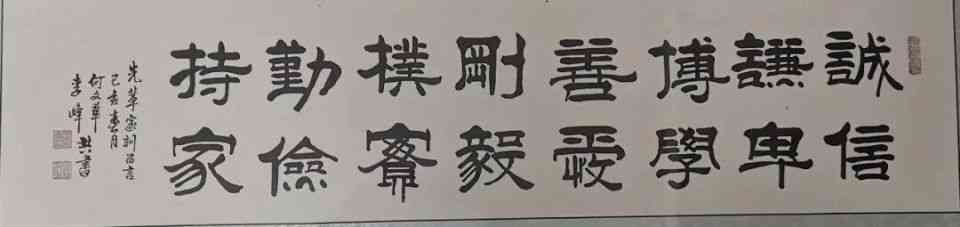 誠信
謙卑
博學
善
剛毅
樸實
勤儉
持家
先輩家訓留言
己亥春月
何文華
李峰共書